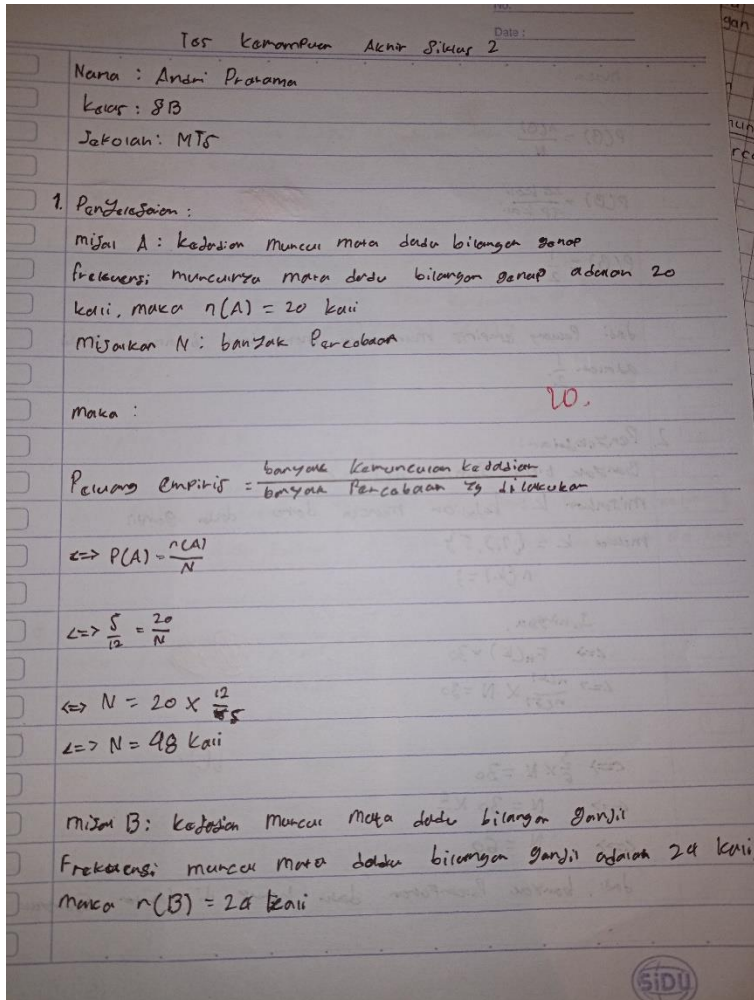 No.
Date :
Tes Kemampuan Akhir Siklus 2
Nama : Andri Pratama
Kelas : 8B
Sekolah : MTs
1. Penyelesaian :
misal A : kejadian muncul mata dadu bilangan genap
frekuensi munculnya mata dadu bilangan genap adalah 20
kali, maka n(A) = 20 kali
misalkan N : banyak Percobaan
20.
maka :
Peluang empiris = banyak kemunculan kejadian / banyak Percobaan yg dilakukan
<=> P(A) = n(A) / N
<=> 5/12 = 20/N
<=> N = 20 x 12/5
<=> N = 48 kali
misal B : kejadian muncul mata dadu bilangan ganjil
Frekuensi muncul mata dadu bilangan ganjil adalah 24 kali
maka n(B) = 24 kali
SiDU